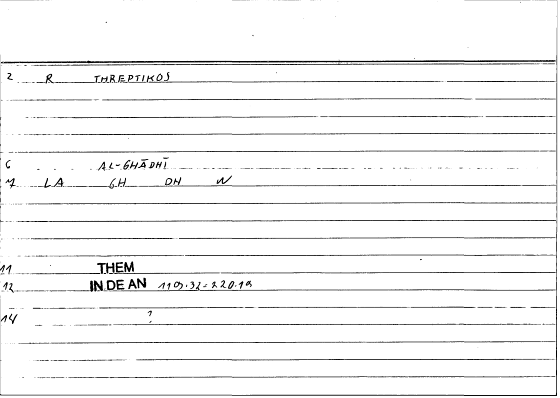 2 R THREPTIKOS
6 AL-GHĀDHĪ
7 LA GH DH W
11 THEM
12 IN.DE AN
14 ?